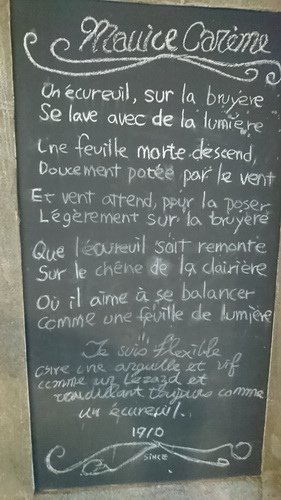 Mauice Carème
Un écureuil, sur la bruyère
Se lave avec de la lumière
Une feuille morte descend,
Doucement potée par le vent
Et vent attend, pour la poser
Légèrement sur la bruyère
Que l'écureuil soit remonté
Sur le chêne de la clairière
Où il aime à se balancer
Comme une feuille de lumière
Je suis flexible
une anguille et vif
comme un lézard et
toujours comme
un écureuil.
1910
SINCE